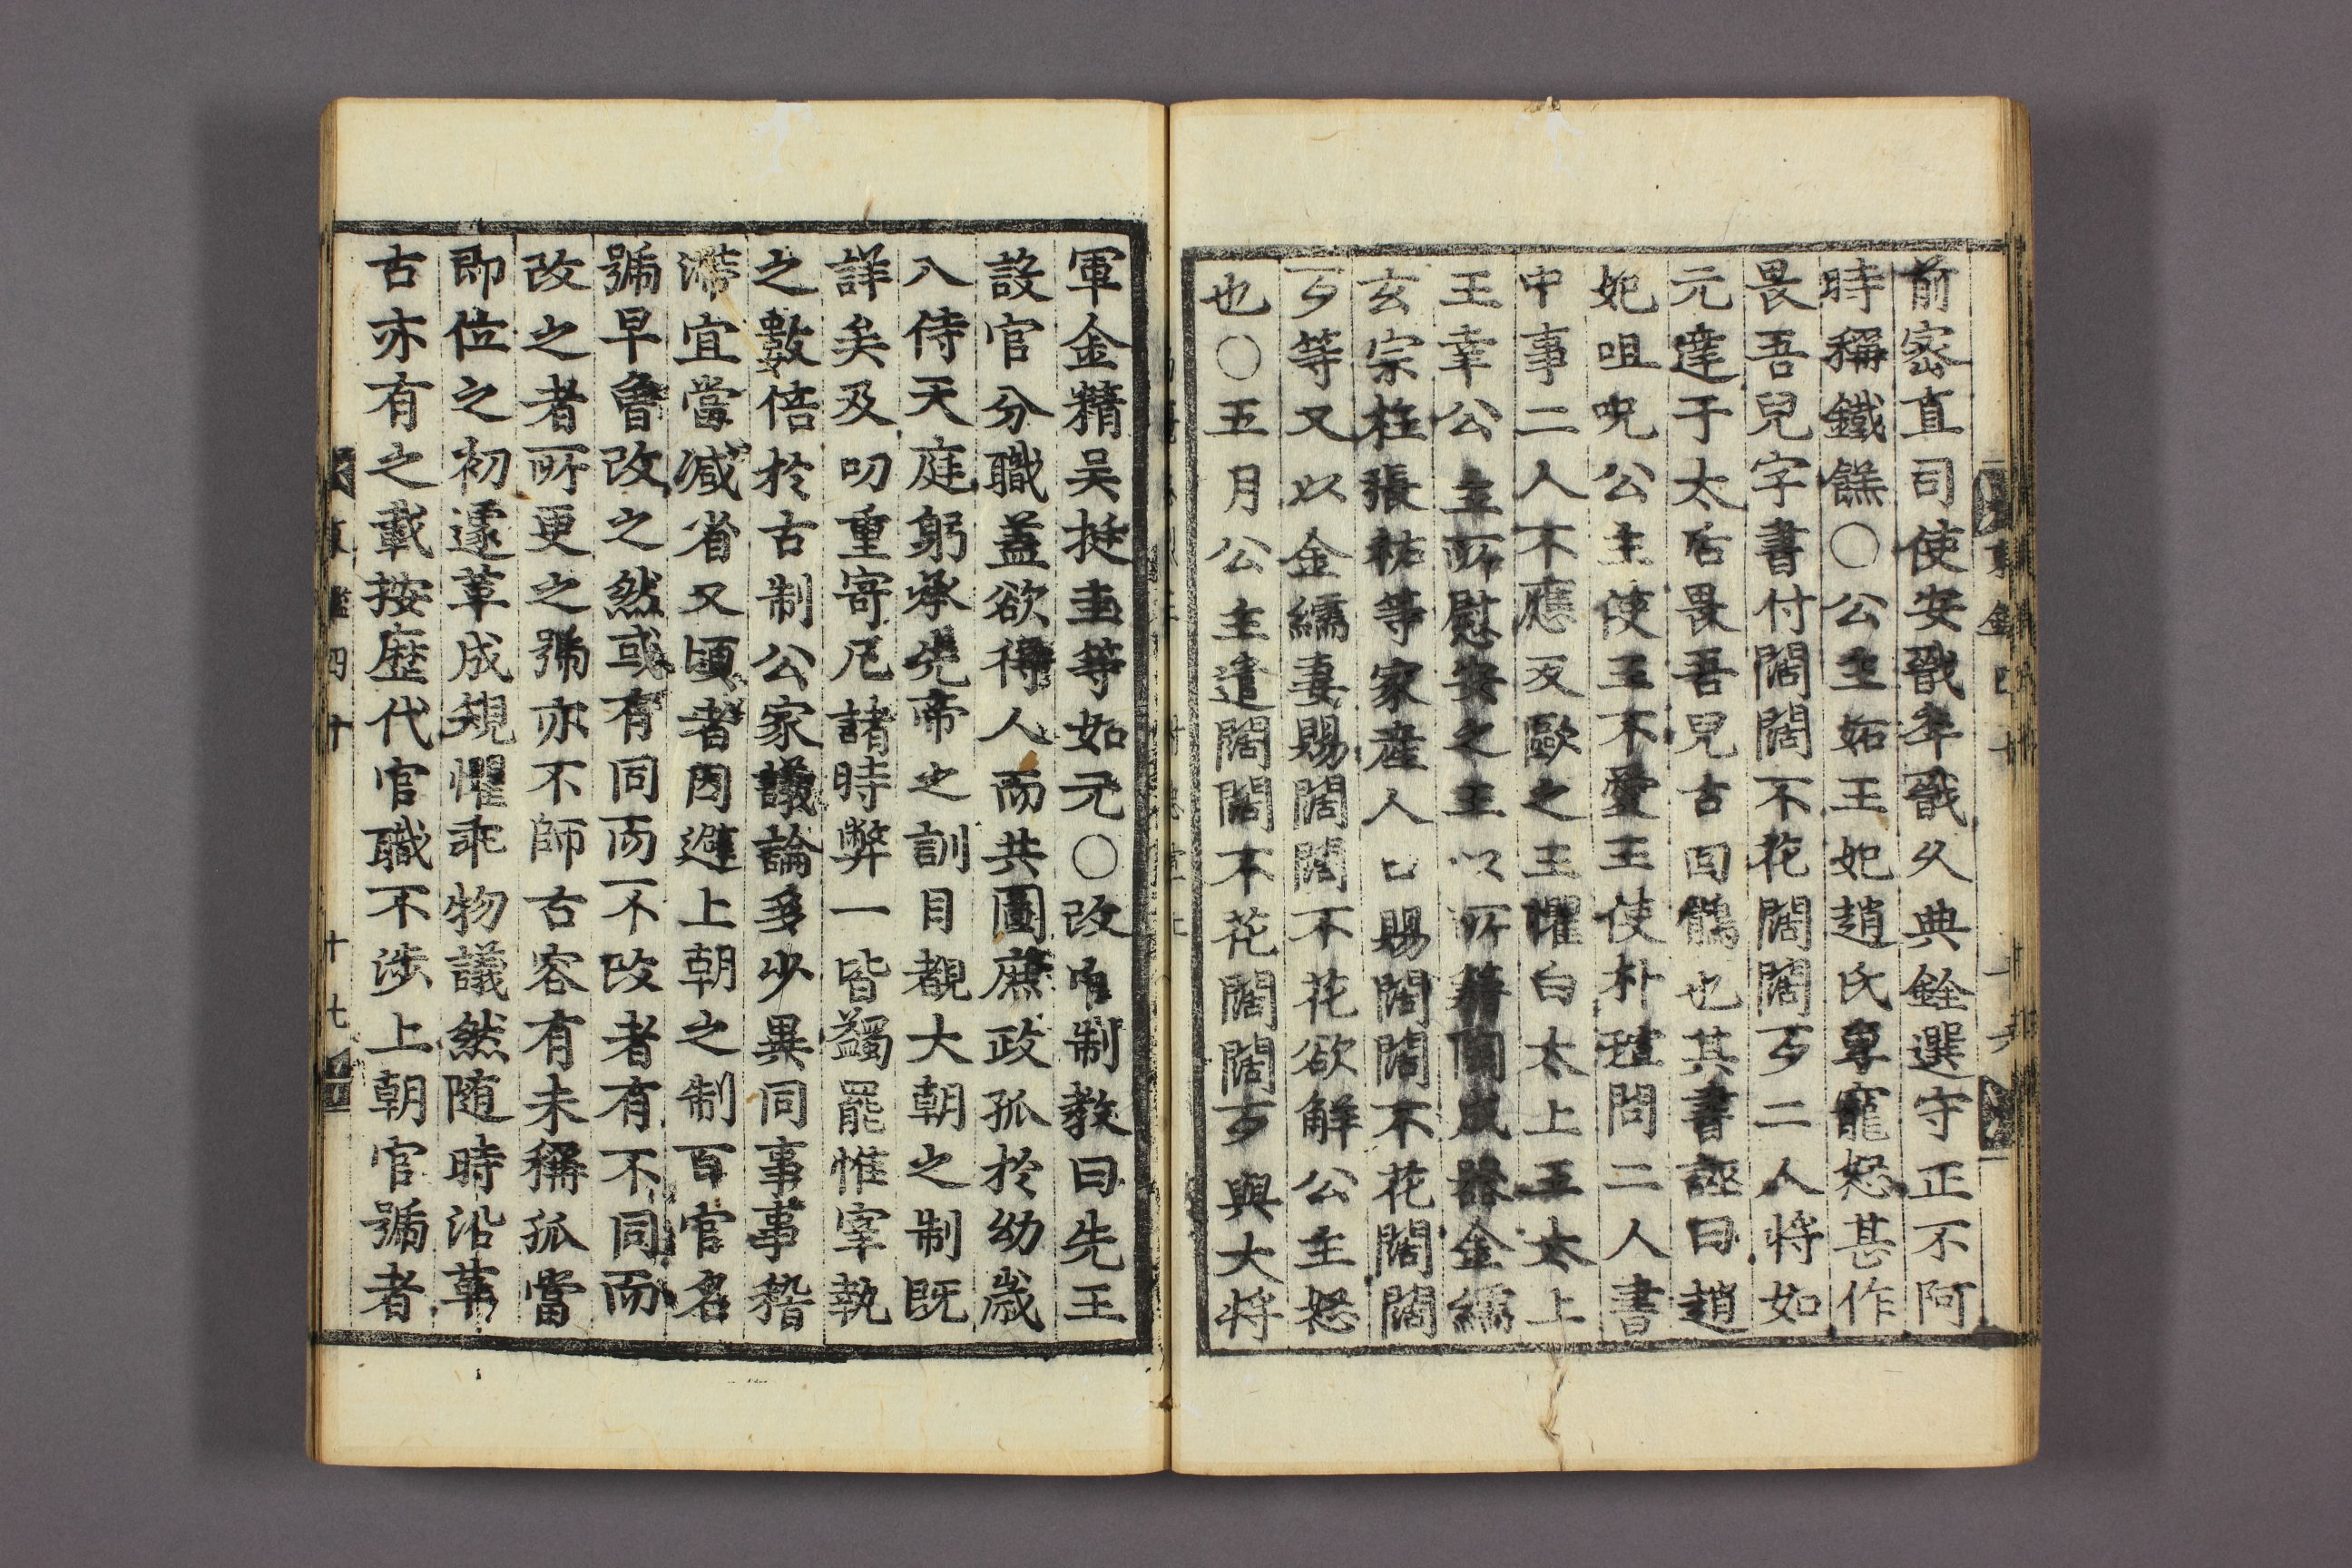 前密直司使安戩卒戩久典銓選守正不阿
時稱鐵餻〇公主妬王妃趙氏專寵怒甚作
畏吾兒字書付闊闊不花闊闊歹二人將如
元達于太后畏吾兒古回鶻也其書誣曰趙
妃咀呪公主使王不愛王使朴瑄問二人書
中事二人不應反歐之王懼白太上王太上
王幸公主所慰安之王以所籍閹成器金繻
玄宗柱張祐等家産人口賜闊闊不花闊闊
歹等又以金繻妻賜闊闊不花欲解公主怒
也〇五月公主遣闊闊不花闊闊歹與大将
軍金精吴挺圭等如元〇改官制教曰先王
設官分職蓋欲得人而共圖庶政孤於幼歳
入侍天庭躬承先帝之訓目覩大朝之制既
詳矣及叨重寄凢諸時弊一皆蠲罷惟宰執
之數倍於古制公家議論多少異同事事稽
滯宜當减省又頃者因避上朝之制百官名
號早曾改之然或有同而不改者有不同而
改之者所更之號亦不師古容有未稱孤當
即位之初遂革成規懼乖物議然随時沿革
古亦有之載按歷代官職不涉上朝官號者
十七